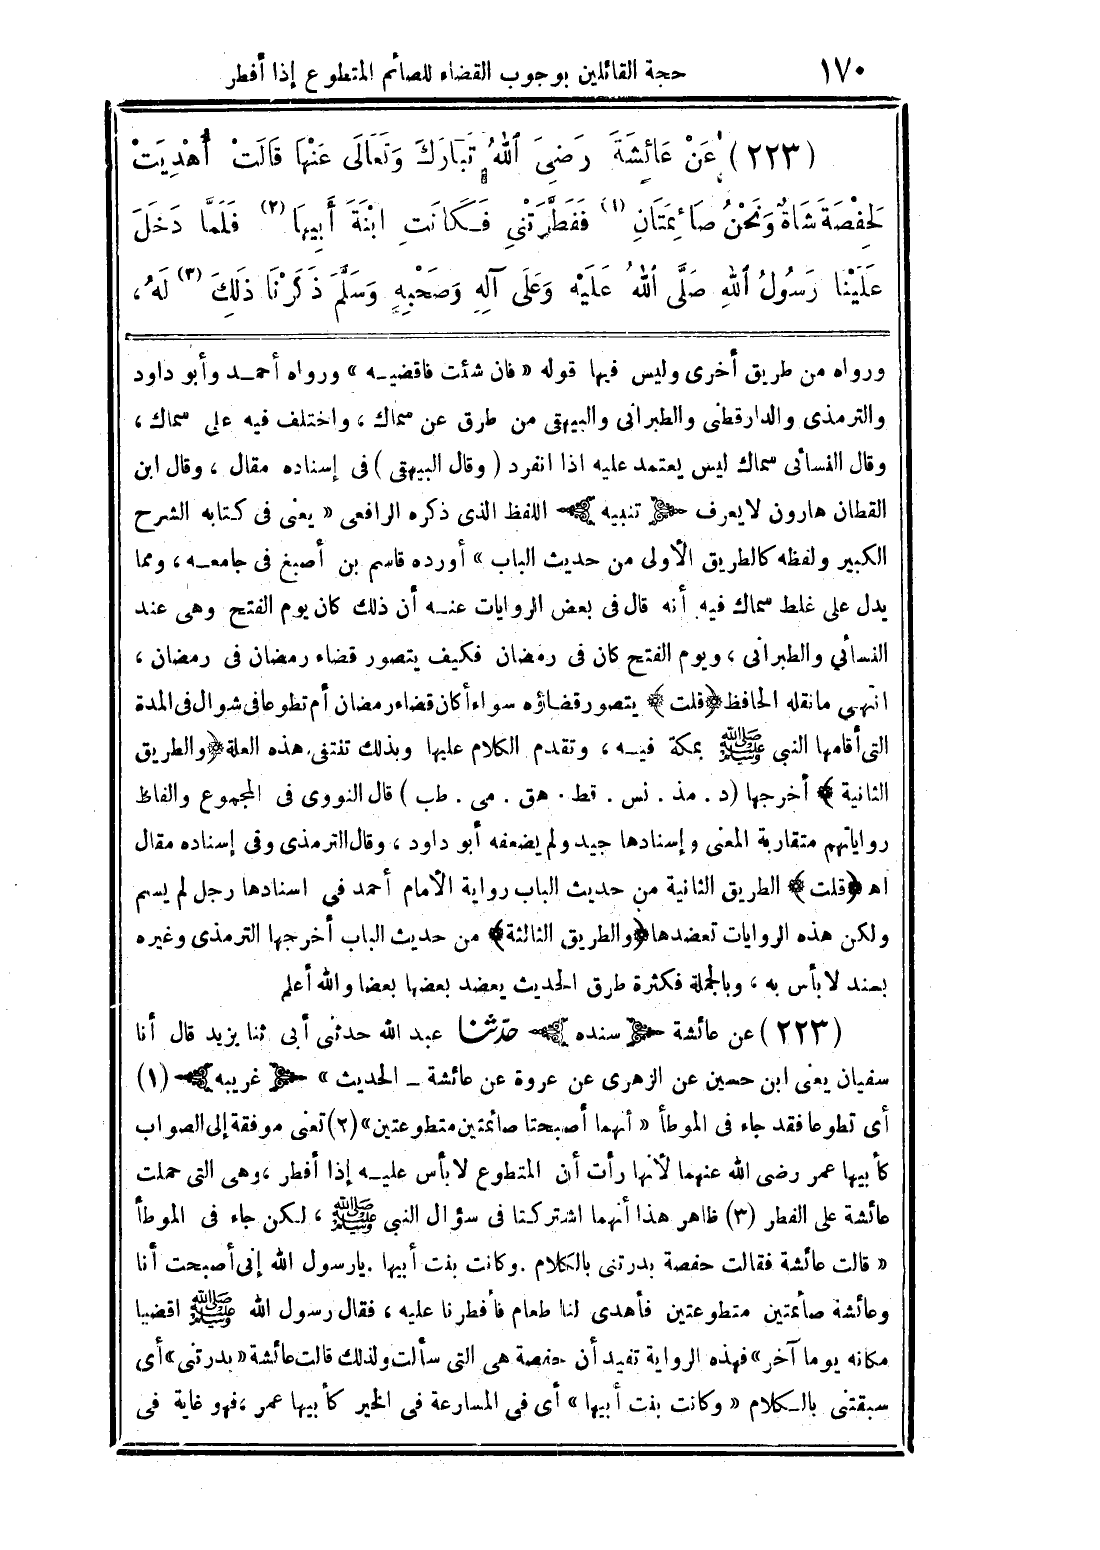 ١٧٠ حجة القائلين بوجوب القضاء للصائم المتطوع إذا أفطر
(٢٢٣) عَنْ عَائِشَةَ رَضِيَ ٱللهُ تَبَارَكَ وَتَعَالَى عَنْهَا قَالَتْ أُهْدِيَتْ
لِحَفْصَةَ شَاةٌ وَنَحْنُ صَائِمَتَانِ (١) فَفَطَّرَتْنِي فَكَانَتِ ابْنَةَ أَبِيهَا (٢) فَلَمَّا دَخَلَ
عَلَيْنَا رَسُولُ ٱللهِ صَلَّى ٱللهُ عَلَيْهِ وَعَلَى آلِهِ وَصَحْبِهِ وَسَلَّمَ ذَكَرْنَا ذَلِكَ (٣) لَهُ ،
ورواه من طريق أخرى وليس فيها قوله « فان شئت فاقضيـه » ورواه أحمـد وأبو داود
والترمذى والدارقطنى والطبرانى والبيهقى من طرق عن سماك ، واختلف فيه على سماك ،
وقال النسائى سماك ليس يعتمد عليه اذا انفرد ( وقال البيهقى ) فى إسناده مقال ، وقال ابن
القطان هارون لا يعرف ﴿ تنبيه ﴾ اللفظ الذى ذكره الرافعى « يعنى فى كتابه الشرح
الكبير ولفظه كالطريق الأولى من حديث الباب » أورده قاسم بن أصبغ فى جامعـه ، ومما
يدل على غلط سماك فيه أنه قال فى بعض الروايات عنـه أن ذلك كان يوم الفتح وهى عند
النسائي والطبرانى ، ويوم الفتح كان فى رمضان فكيف يتصور قضاء رمضان فى رمضان ،
انتهى مانقله الحافظ ﴿قلت﴾ يتصور قضاؤه سواء أكان قضاء رمضان أم تطوعا فى شوال فى المدة
التى أقامها النبي ﷺ بمكة فيـه ، وتقدم الكلام عليها وبذلك تنتفى هذه العلة ﴿والطريق
الثانية ﴾ أخرجها (د . مذ . نس . قط . هق . مى . طب ) قال النووى فى المجموع والفاظ
رواياتهم متقاربة المعنى وإسنادها جيد ولم يضعفه أبو داود ، وقال الترمذى وفى إسناده مقال
اه ﴿قلت﴾ الطريق الثانية من حديث الباب رواية الأمام أحمد في اسنادها رجل لم يسم
ولكن هذه الروايات تعضدها ﴿والطريق الثالثة﴾ من حديث الباب أخرجها الترمذى وغيره
بسند لابأس به ، وبالجملة فكثرة طرق الحديث يعضد بعضها بعضا والله أعلم
(٢٢٣) عن عائشة ﴿ سنده ﴾ حدثنا عبد الله حدثنى أبى ثنا يزيد قال أنا
سفيان يعنى ابن حسين عن الزهرى عن عروة عن عائشة ـ الحديث » ﴿ غريبه ﴾ (١)
أى تطوعا فقد جاء فى الموطأ « أنهما أصبحتا صائمتين متطوعتين» (٢) تعنى موفقة إلى الصواب
كأبيها عمر رضى الله عنهما لأنها رأت أن المتطوع لابأس عليـه إذا أفطر ، وهى التى حملت
عائشة على الفطر (٣) ظاهر هذا أنهما اشتركتا فى سؤال النبي ﷺ ، لكن جاء فى الموطأ
« قالت عائشة فقالت حفصة بدرتنى بالكلام . وكانت بنت أبيها . يارسول الله إنى أصبحت أنا
وعائشة صائمتين متطوعتين فأهدى لنا طعام فأفطرنا عليه ، فقال رسول الله ﷺ اقضيا
مكانه يوما آخر » فهذه الرواية تفيد أن حفصة هى التى سألت ولذلك قالت عائشة « بدرتنى » أى
سبقتنى بالكلام « وكانت بنت أبيها » أى فى المسارعة فى الخير كأبيها عمر ، فهو غاية فى